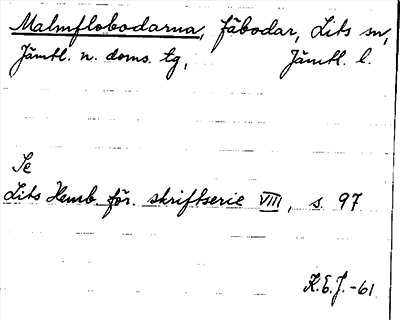 Malmflobodarna, fäbodar, Lits sn,
Jämtl. n. doms. tg, Jämtl. l.
Se
Lits Hemb. för. skriftserie VIII, s 97
K.E.J.-61